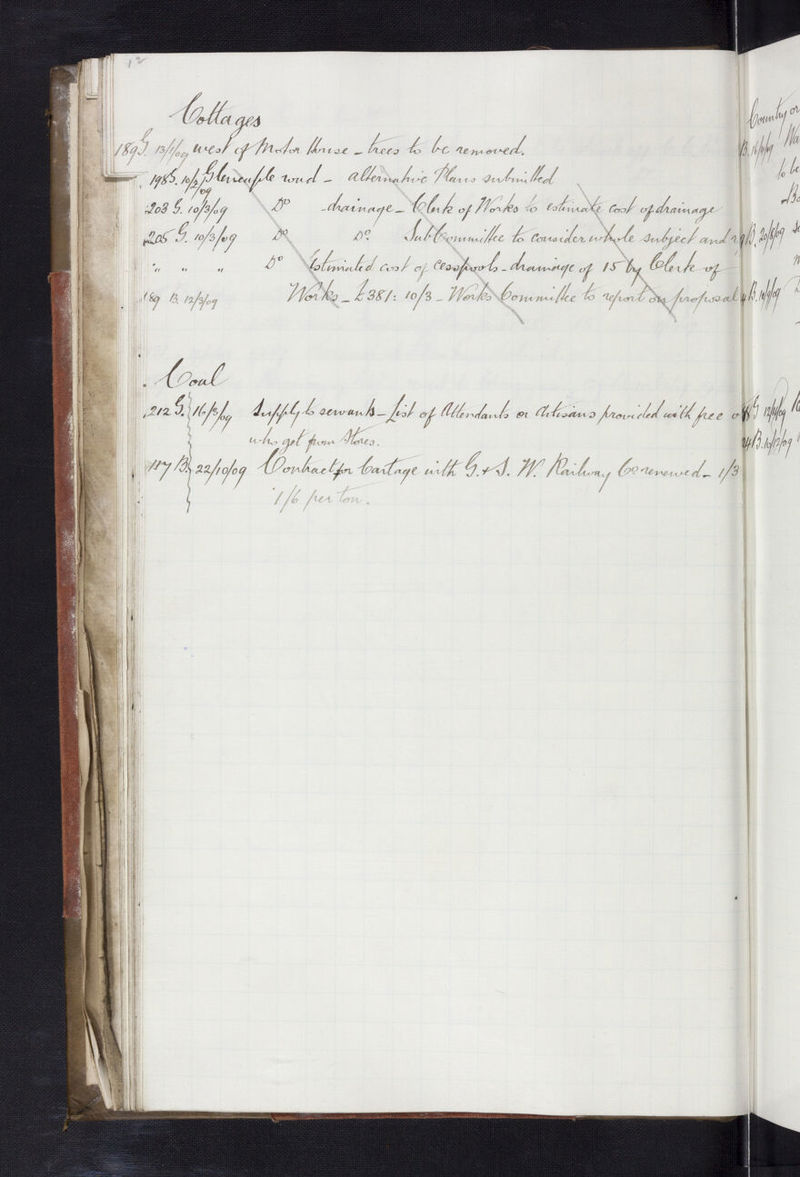 12
Cottages
189 G. 13/1/09 west of Motor House – trees to be removed.
198 G. 10/2/09 Glencaple road – alternative Plans submitted
203 G. 10/3/09 Do drainage – Clerk of Works to estimate cost of drainage
205 G. 10/3/09 Do Do. Sub Committee to consider whole subject and
" " " Do Estimated cost of cesspools – drainage of 15 by Clerk of
189 B. 12/3/09 Works – £381: 10/3 – Works Committee to report on proposal
Coal
212 G. 16/3/09 Supply to servants – List of Attendants or Artisans provided with free
who get from Stores.
117 B. 22/10/09 Contract for Cartage with G. & S. W. Railway Co renewed – 1/3
1/6 per ton.
Country